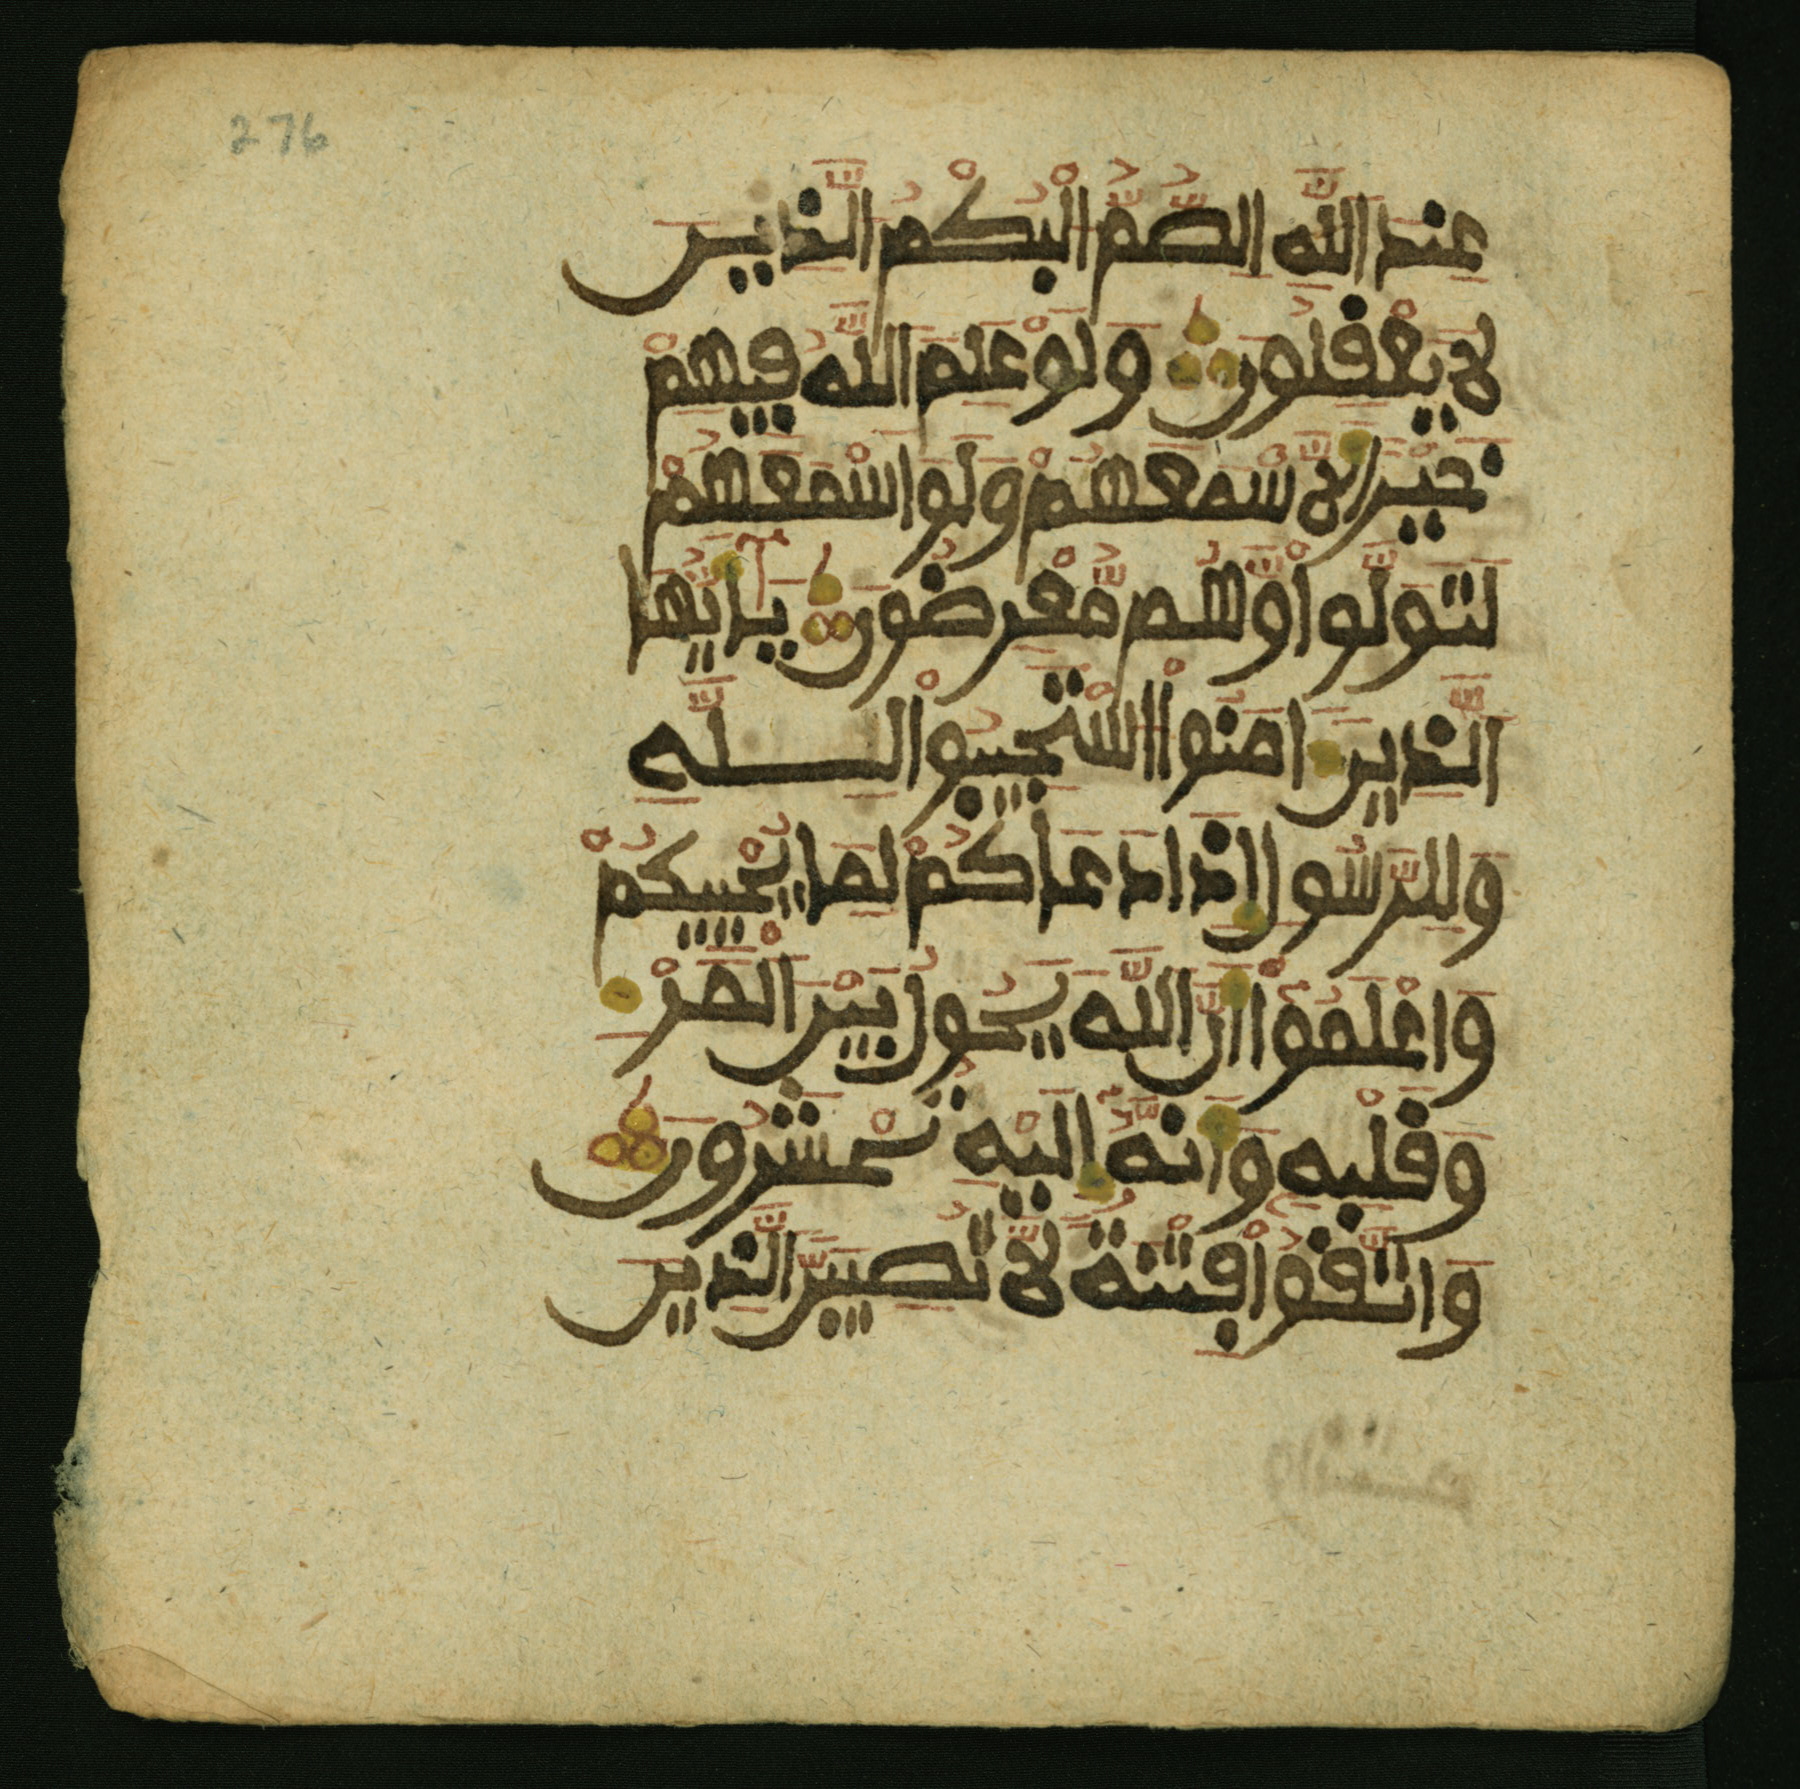 276
عِندَ اللَّهِ الصُّمُّ الْبُكْمُ الَّذِينَ
لَا يَعْقِلُونَ وَلَوْ عَلِمَ اللَّهُ فِيهِمْ
خَيْرًا لَّأَسْمَعَهُمْ وَلَوْ اَسْمَعَهُمْ
لَتَوَلَّوا۟ وَّهُم مُّعْرِضُونَ يَٰٓأَيُّهَا
الَّذِينَ ءَامَنُوا۟ اسْتَجِيبُوا۟ لِلَّهِ
وَلِلرَّسُولِ إِذَا دَعَاكُمْ لِمَا يُحْيِيكُمْ
وَاعْلَمُوٓا۟ أَنَّ اللَّهَ يَحُولُ بَيْنَ الْمَرْءِ
وَقَلْبِهِ وَأَنَّهُۥٓ إِلَيْهِ تُحْشَرُونَ
وَاتَّقُوا۟ فِتْنَةً لَّا تُصِيبَنَّ الَّذِينَ